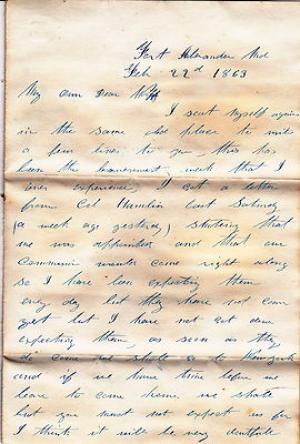 Fort Alexander Md
Feb 22d 1863
My own Dear Wife
I seat myself again
in the same old place to write
a few lines to you, this has
been the week that I
ever experience, I got a letter
from Col Hamlin last Saturday
(a week ago yesterday) stateing that
we was and that our
would come right along
so I have been expecting them
every day but they have not com
yet but I have not got done
expecting them, as soon as they
do come we shall go to
and if we have time before we
leave to come home we shall
but you must not expect us for
I think it will be very doutfull